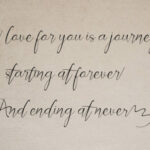 love for you is a journey
starting at forever
And ending at never